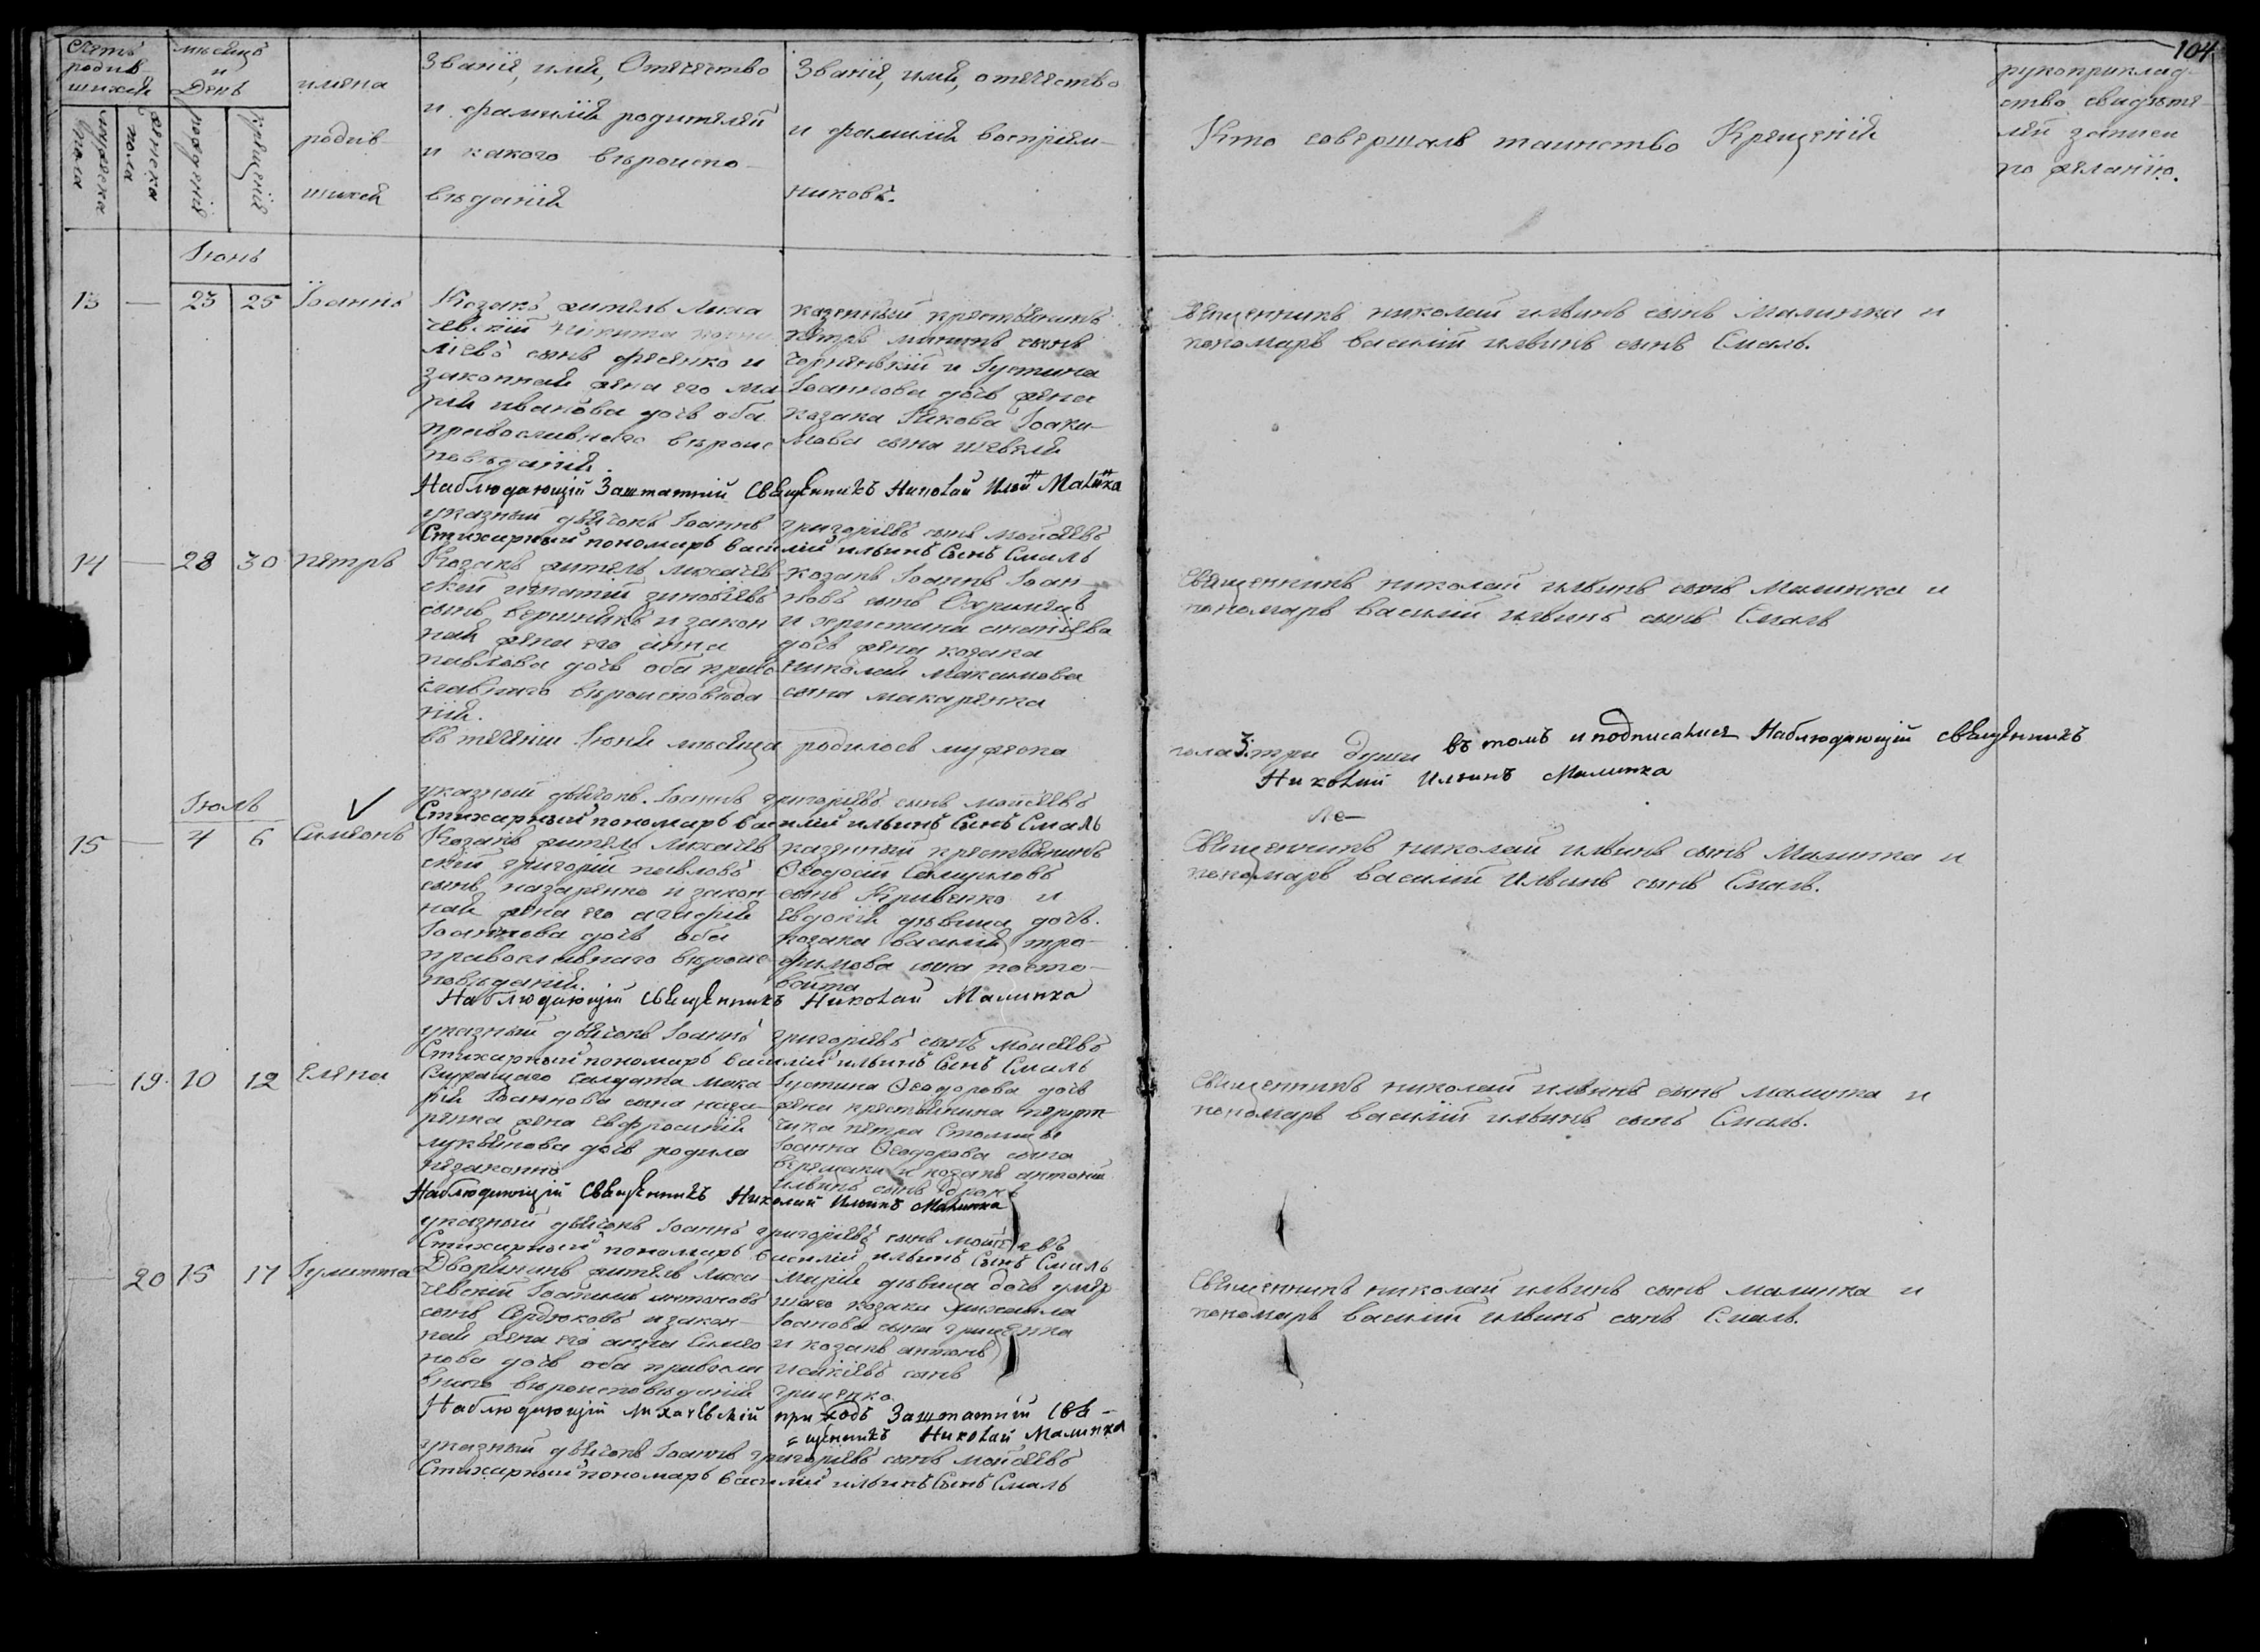 104
Счетъ родив шихся
мужеска пола
женска пола
мѣсяцъ и День
рождения
крещенія
имена родив шихся
Званія, имя, Отечество
и фамилія родителей
и какого вѣроиспо-
вѣданія
Званія, имя, отечество
и фамилія воспріем-
никовъ.
Кто совершалъ таинство Крещенія
рукоприклад-
ство свидѣте-
лей записи
по желанію.
Іюнь
13 — 23 25 Іоаннъ
Козакъ житель Лиха
чевскій Никита
ліевъ сынъ Фесенко и
законная жена его Ма
рія иванова дочь оба
православнаго вѣроис
повѣданія.
казенный крестьянинъ
петръ сынъ
и Іустина
Іоаннова дочь жена
козака Якова Іоаки-
мова сына шевеля
священникъ николай ильинъ сынъ Малинка и
пономарь василій ильинъ сынъ Смаль.
Наблюдающій Заштатній Священникъ Николай Малинка
указный дьячокъ Іоаннъ григоріевъ сынъ моисеевъ
Стихарный пономарь василій ильинъ Сынъ Смаль
14 — 28 30 петръ
Козакъ житель лихачев
скій игнатій зиновіевъ
сынъ вершникъ и закон
ная жена его анна
павлова дочь оба право
славнаго вѣроисповѣда
нія.
козакъ Іоаннъ Іоан-
новъ сынъ
и христина
дочь жена козака
николая максимова
сына макаренка
Священникъ николай ильинъ сынъ Малинка и
пономарь василій ильинъ сынъ Смаль
въ теченіи Іюня мѣсяца родилось мужеска
пола 3. три души въ томъ и подписался Наблюдающій священникъ
Николай Ильинъ Малинка
указный дьячокъ. Іоаннъ григоріевъ сынъ моисеевъ
Стихарный пономарь василій ильинъ Сынъ Смаль
Іюль
15 — 4 6 Симеонъ
Козакъ житель Лихачев
скій григорій павловъ
сынъ назаренко и закон
ная жена его агафія
Іоаннова дочь оба
православнаго вѣроис
повѣданія.
казенный крестьянинъ
Ѳеодосій Самуиловъ
сынъ Кривенко и
евдокія дѣвица дочь.
козака василія тро-
фимова сына косто-
вѣщенникъ николай ильинъ сынъ Малинка и
пономарь василій Ильинъ сынъ Смаль.
Наблюдающій священникъ Николай Малинка
указный дьячокъ Іоаннъ григоріевъ сынъ моисеевъ
Стихарный пономарь василій ильинъ Сынъ Смаль
— 19. 10 12 Елена
Служащаго салдата мака
рія Іоаннова сына наза-
ренка жена евфросинія
лукьянова дочь родила
незаконно
Іустина Ѳеодорова дочь
жена крестьянина
петра
Іоанна Ѳеодорова сына
и козакъ антоній
ильинъ сынъ
священникъ николай ильинъ сынъ малинка и
пономарь василій ильинъ сынъ Смаль.
Наблюдающій Священникъ Николай Ильинъ Малинка
указный дьячокъ Іоаннъ григоріевъ сынъ моисеевъ
Стихарный пономарь василій ильинъ Сынъ Смаль
— 20 15 17 Іулитта
Дворянинъ житель Лиха
чевскій Іоакимъ антоновъ
сынъ Сердюковъ и закон-
ная жена его анна Симео
нова дочь оба правосла
внаго вѣроисповѣданія
Марія дѣвица дочь умер
шаго козака михаила
Іоанова сына гриценка
и козакъ антонъ
исакіевъ сынъ
гриценко
Священникъ николай ильинъ сынъ малинка и
пономарь василій ильинъ сынъ Смаль.
Наблюдающій лихачевскій приходъ Заштатній свя-
щенникъ Николай Малинка
указный дьячокъ Іоаннъ григоріевъ сынъ моисеевъ
Стихарный пономарь василій ильинъ Сынъ Смаль